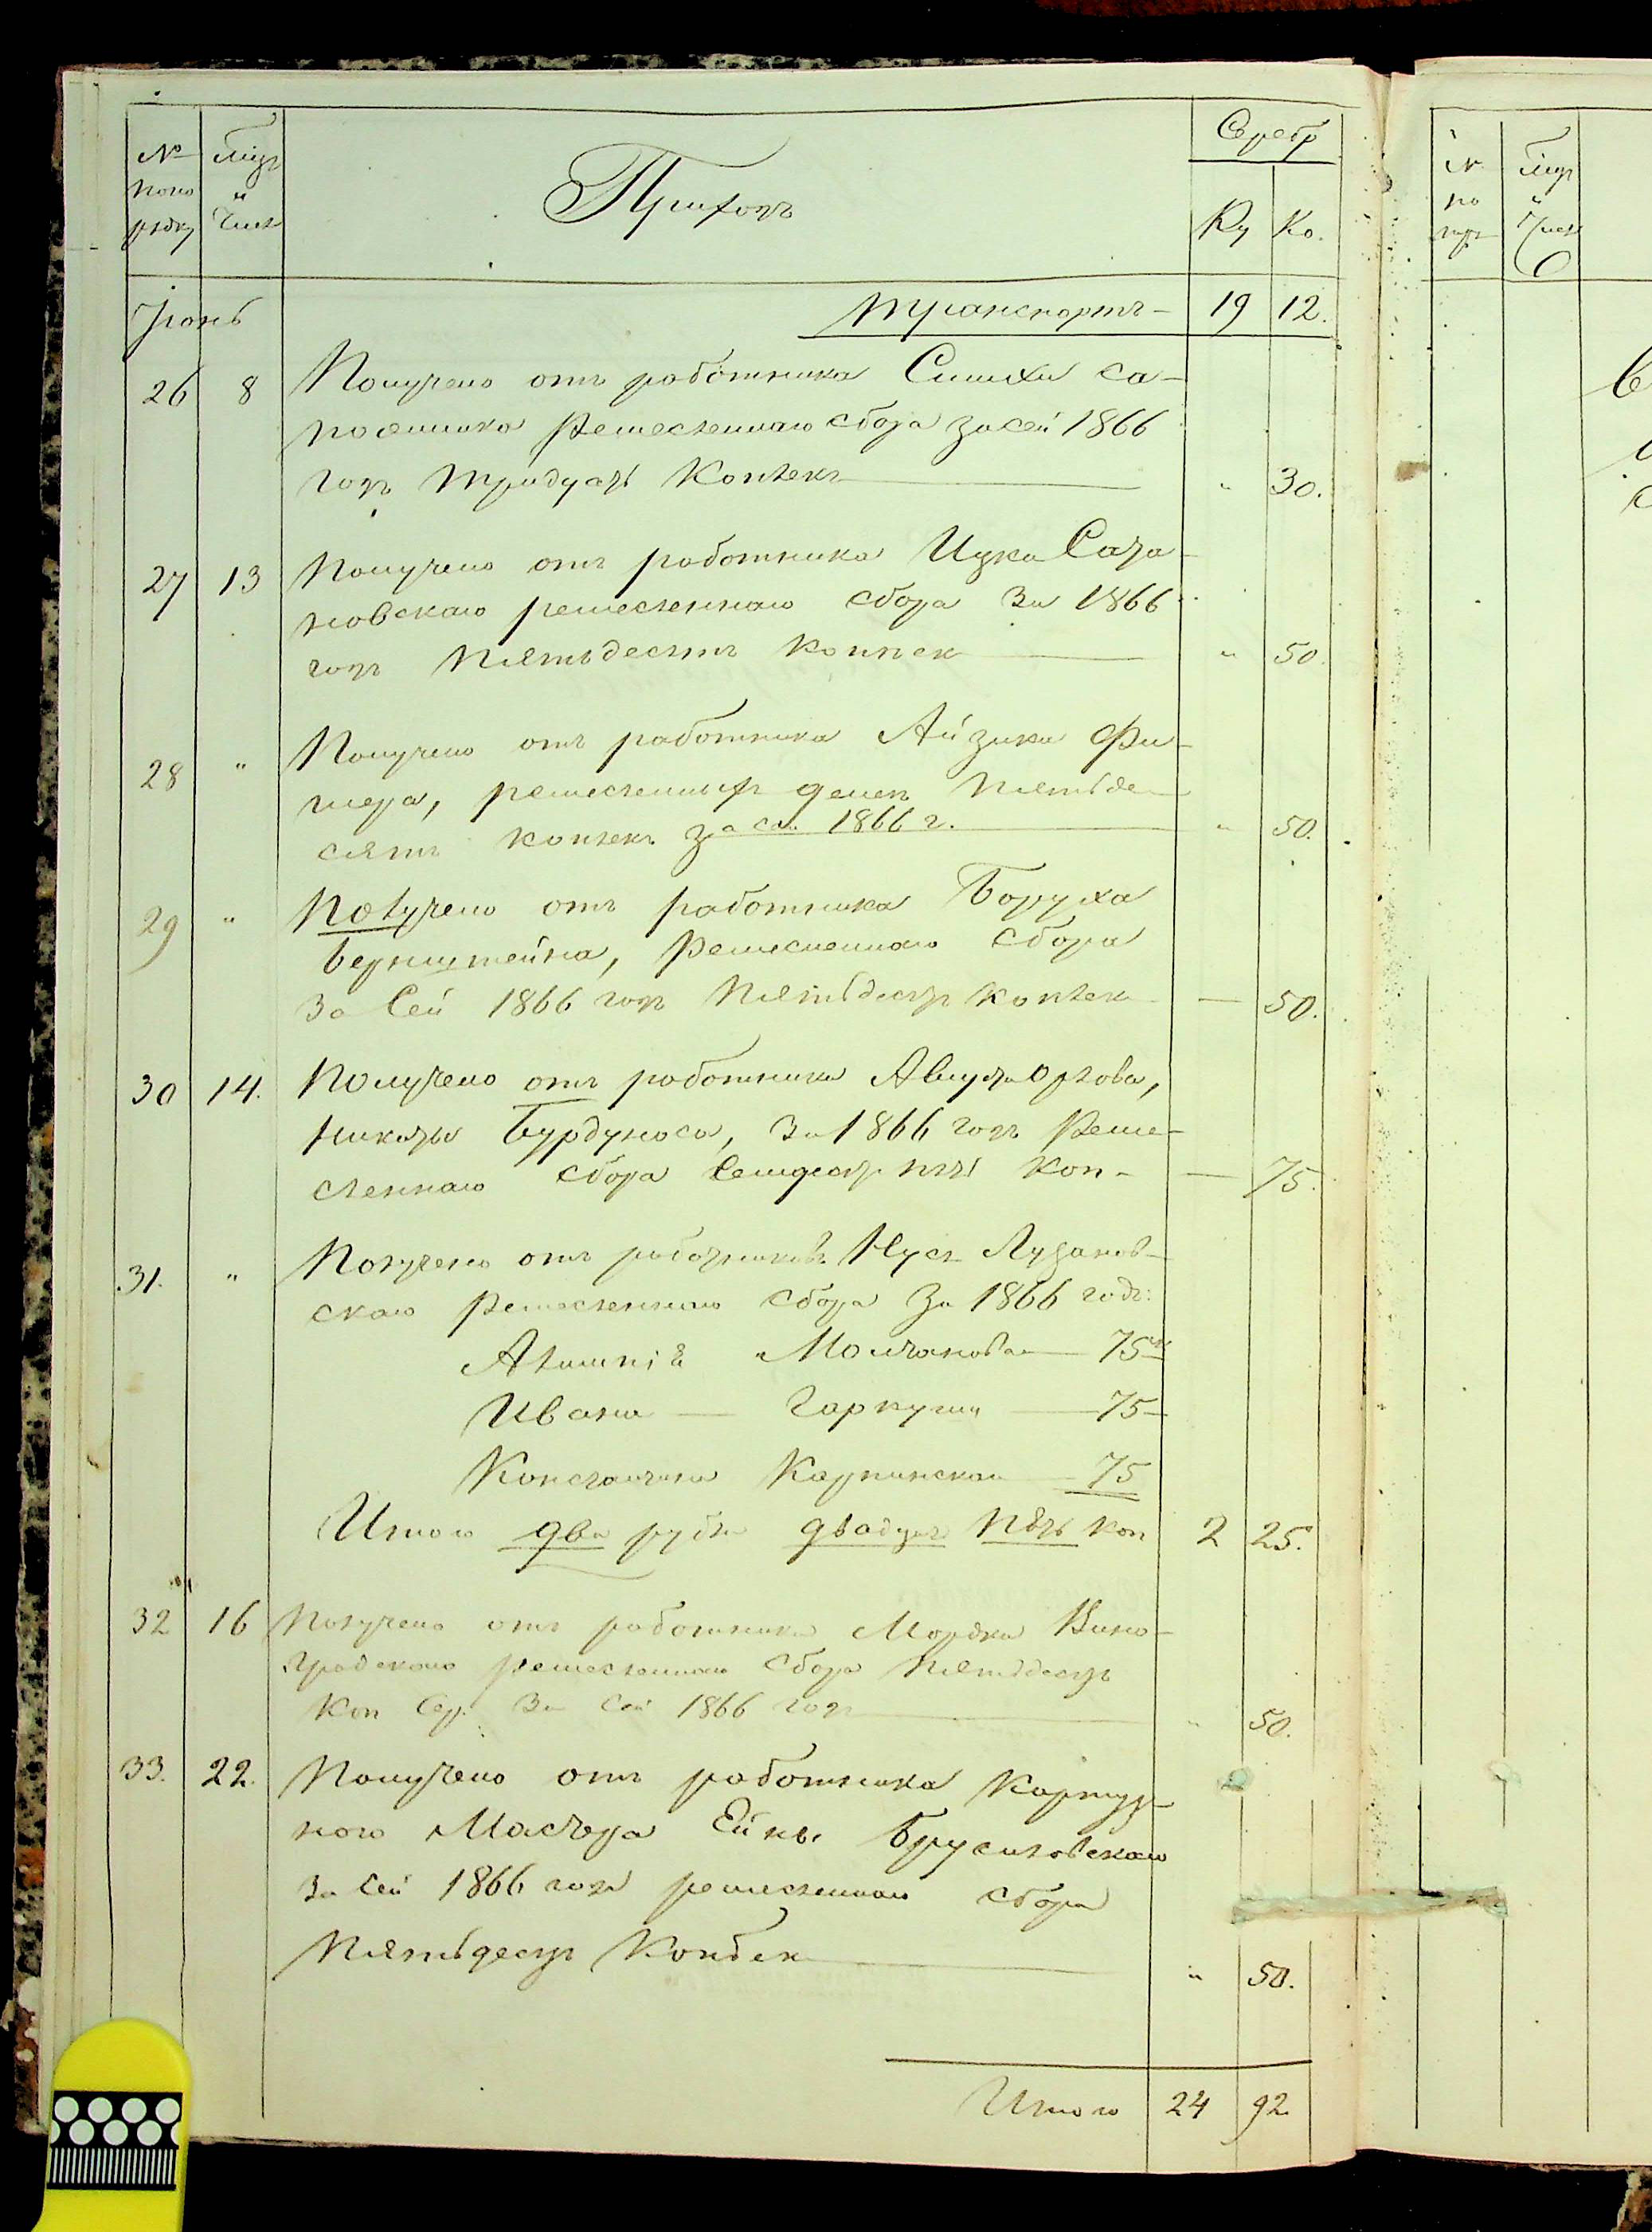 № Мцъ Приходъ Серебр
поно и
рядку Число Ру Ко.
Іюнь транспортъ - 19 12.
26 8 Получено отъ работника Симхи Са-
пожника Ремесленнаго сбора за сей 1866
годъ тридцать Копѣекъ " 30.
27 13 Получено отъ работника Ицка Саза
новскаго ремесленнаго сбора За 1866
годъ Пятьдесятъ копѣек " 50
28 " Получено отъ работника Айзика Фи-
шера, ремесленныхъ денегъ Пятьде
сятъ копѣекъ за сей 1866 г. " 50.
29 " Получено отъ работника Боруха
Бернштейна, Ремесленнаго Сбора
За Сей 1866 годъ Пятьдесятъ копѣек — 50.
30 14. Получено отъ работника
Никиты Бурдуноса, За 1866 годъ Реме-
сленнаго Сбора Семдесятъ пять Коп- — 75.
31. " Получено отъ работниковъ Нуса Лузанов-
скаго Ремесленнаго Сбора За 1866 годъ:
Молчанова — 75 к
Ивана — Гаркуши — 75 -
Константина Карпинскаго 75
Итого два рубля двадцать пять коп 2 25.
32 16 Получено отъ работника Мордка Вино-
градскаго ремесленнаго Сбора Пятьдесятъ
Коп Сер. За Сей 1866 годъ " 50.
33. 22. Получено отъ работника Картуз-
ного Мастера Брусиловскаго
За Сей 1866 годъ ремесленнаго сбора
Пятьдесятъ Копѣек " 50.
Итого 24 92
№ Мцъ
по и
Числ